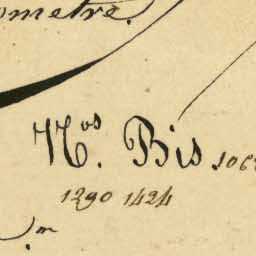 ometre.
N.os Bis 106
1290 1424
m